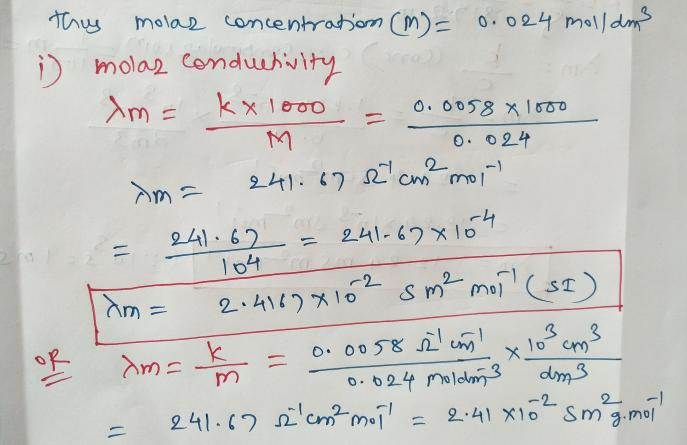 Thus molar concentration (M) = 0.024 mol/dm³
i) molar conductivity
λm = k x 1000 / M = 0.0058 x 1000 / 0.024
λm = 241.67 Ω⁻¹ cm² mol⁻¹
= 241.67 / 10⁴ = 241.67 x 10⁻⁴
λm = 2.4167 x 10⁻² S m² mol⁻¹ (SI)
OR λm = k / m = 0.0058 Ω⁻¹ cm⁻¹ / 0.024 mol dm⁻³ x 10³ cm³ / dm³
= 241.67 Ω⁻¹ cm² mol⁻¹ = 2.41 x 10⁻² S m² g.mol⁻¹